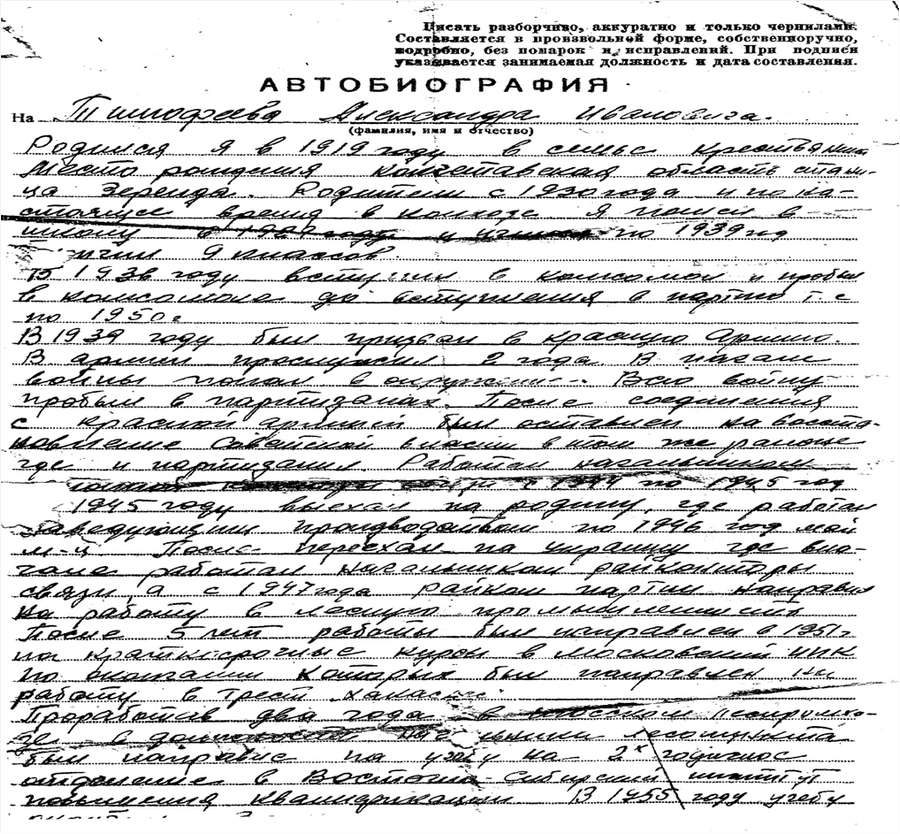 Писать разборчиво, аккуратно и только чернилами.
Составляется в произвольной форме, собственноручно,
подробно, без помарок и исправлений. При подписи
указывается занимаемая должность и дата составления.
АВТОБИОГРАФИЯ
На Тимофеева Александра Ивановича.
(фамилия, имя и отчество)
Родился я в 1919 году в семье крестьянина
Место рождения Кокчетавская область стани-
ца Зеренда. Родители с 1930 года и по на-
стоящее время в колхозе Я пошел в
школу в году и по 1939 год
9 классов.
В 1936 году вступил в комсомол и пробыл
в комсомоле до вступления в партию т.е
по 1950 г
В 1939 году был призван в красную Армию.
В армии прослужил 2 года В начале
войны попал в окружение. Всю войну
пробыл в партизанах. После соединения
с красной армией был оставлен на восста-
новление Советской власти в том же районе
где и партизанил. Работал начальником
с 1944 по 1945 год
1945 году выехал на родину, где работал
Заведующим по 1946 год май
м-ц. После переехал на украину где вна-
чале работал начальником райконторы
связи, а с 1947 года райком партии направил
на работу в лесную промышленность
После 5 лет работы был направлен в 1951 г
на краткосрочные курсы в Московский
по окончании которых был направлен на
работу в трест
Проработав два года в леспромхо-
зе в должности лесопункта
был направлен на учебу на 2х годичное
отделение в Восточно Сибирский институт
повышения квалификации. В 1955 году учебу